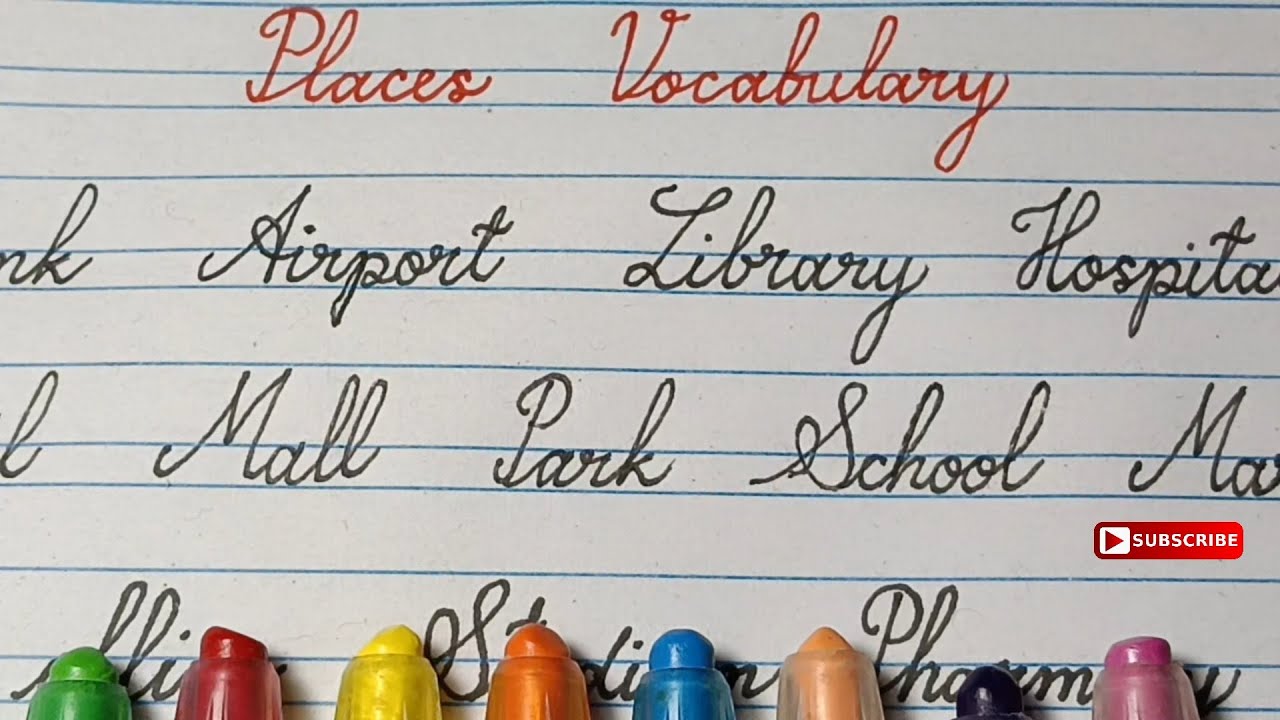 Places Vocabulary
nk Airport Library Hospita
l Mall Park School Mar
SUBSCRIBE
Stadium Pharmacy